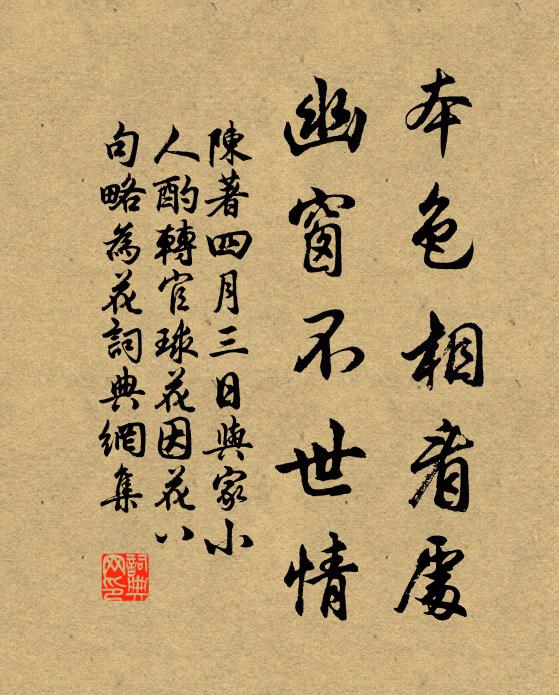 本色相看處
幽窗不世情
陳著四月三日與家小
人酌轉官球花因花八
句略為花詞典網集
詞典網印